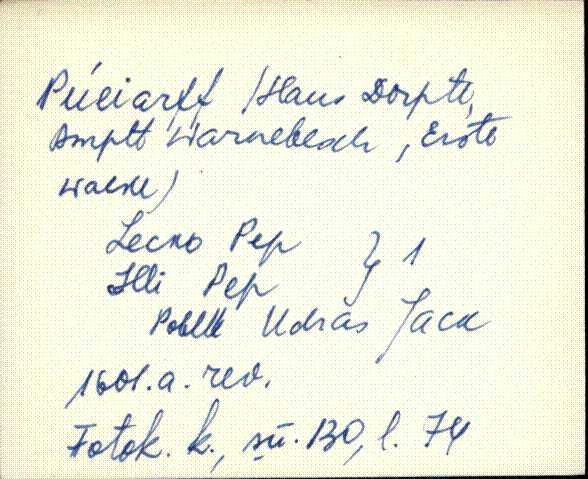 Püeiarff (Haus Dorptt,
Amptt Warnebeck, Erste
Wacke)
Lecko Pep } 1
Illi Pep
Pobell Udras Jack
1601. a. rev.
Fotok. k., sü. 130, l. 74